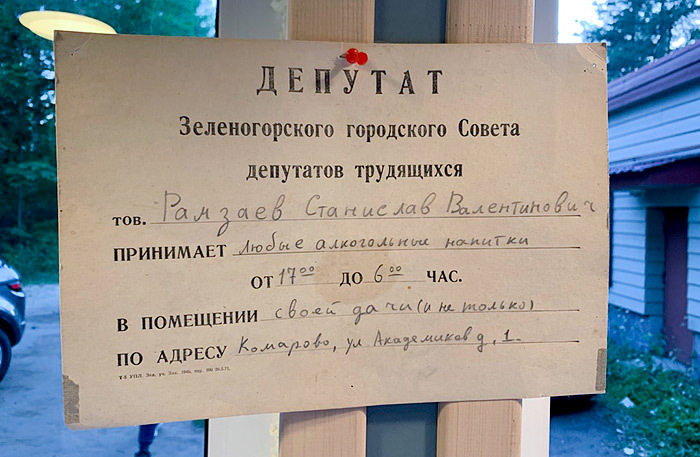 ДЕПУТАТ
Зеленогорского городского Совета
депутатов трудящихся
тов. Рамзаев Станислав Валентинович
ПРИНИМАЕТ любые алкогольные напитки
ОТ 17⁰⁰ ДО 6⁰⁰ ЧАС.
В ПОМЕЩЕНИИ своей дачи (и не только)
ПО АДРЕСУ Комарово, ул Академиков д, 1.